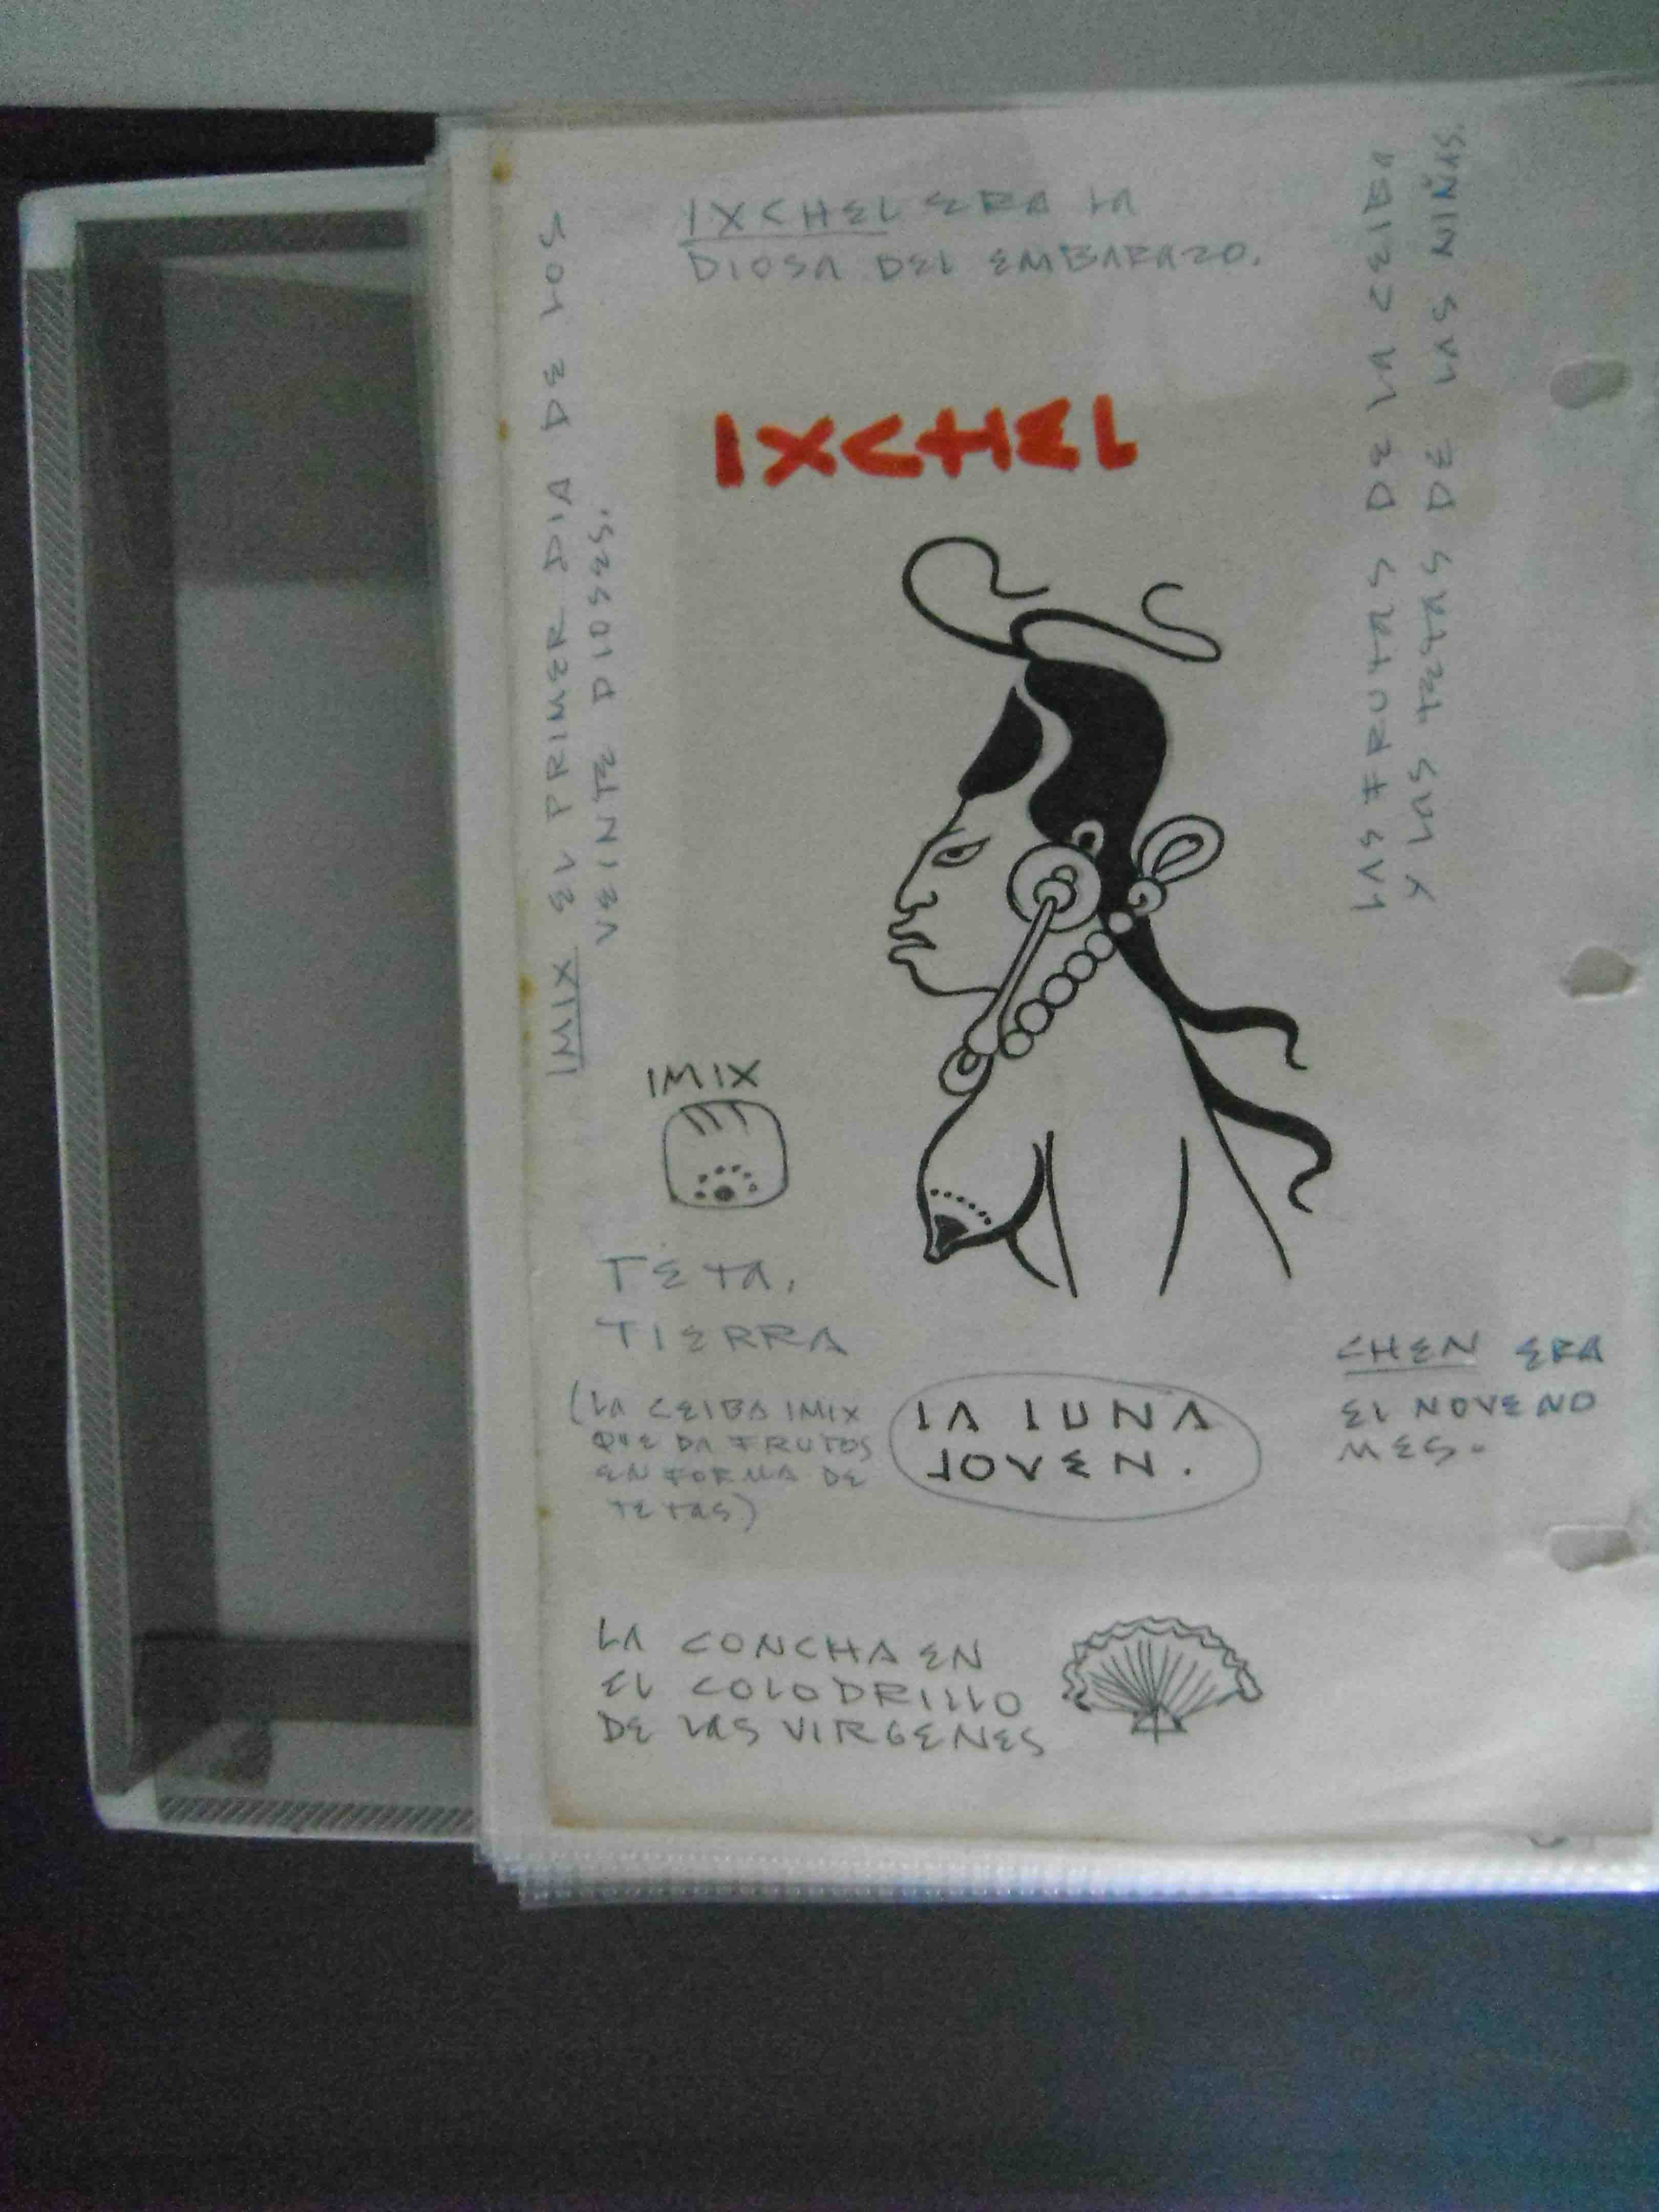 IXCHEL ERA LA
DIOSA DEL EMBARAZO.
IXCHEL
IMIX EL PRIMER DIA DE LOS
VEINTE DIOSES.
LAS FRUTAS DE LA CEIBA
Y LAS TETAS DE LAS NIÑAS.
IMIX
TETA,
TIERRA
(LA CEIBA IMIX
QUE DA FRUTOS
EN FORMA DE
TETAS)
LA LUNA
JOVEN.
CHEN ERA
EL NOVENO
MES.
LA CONCHA EN
EL COLODRILLO
DE LAS VIRGENES